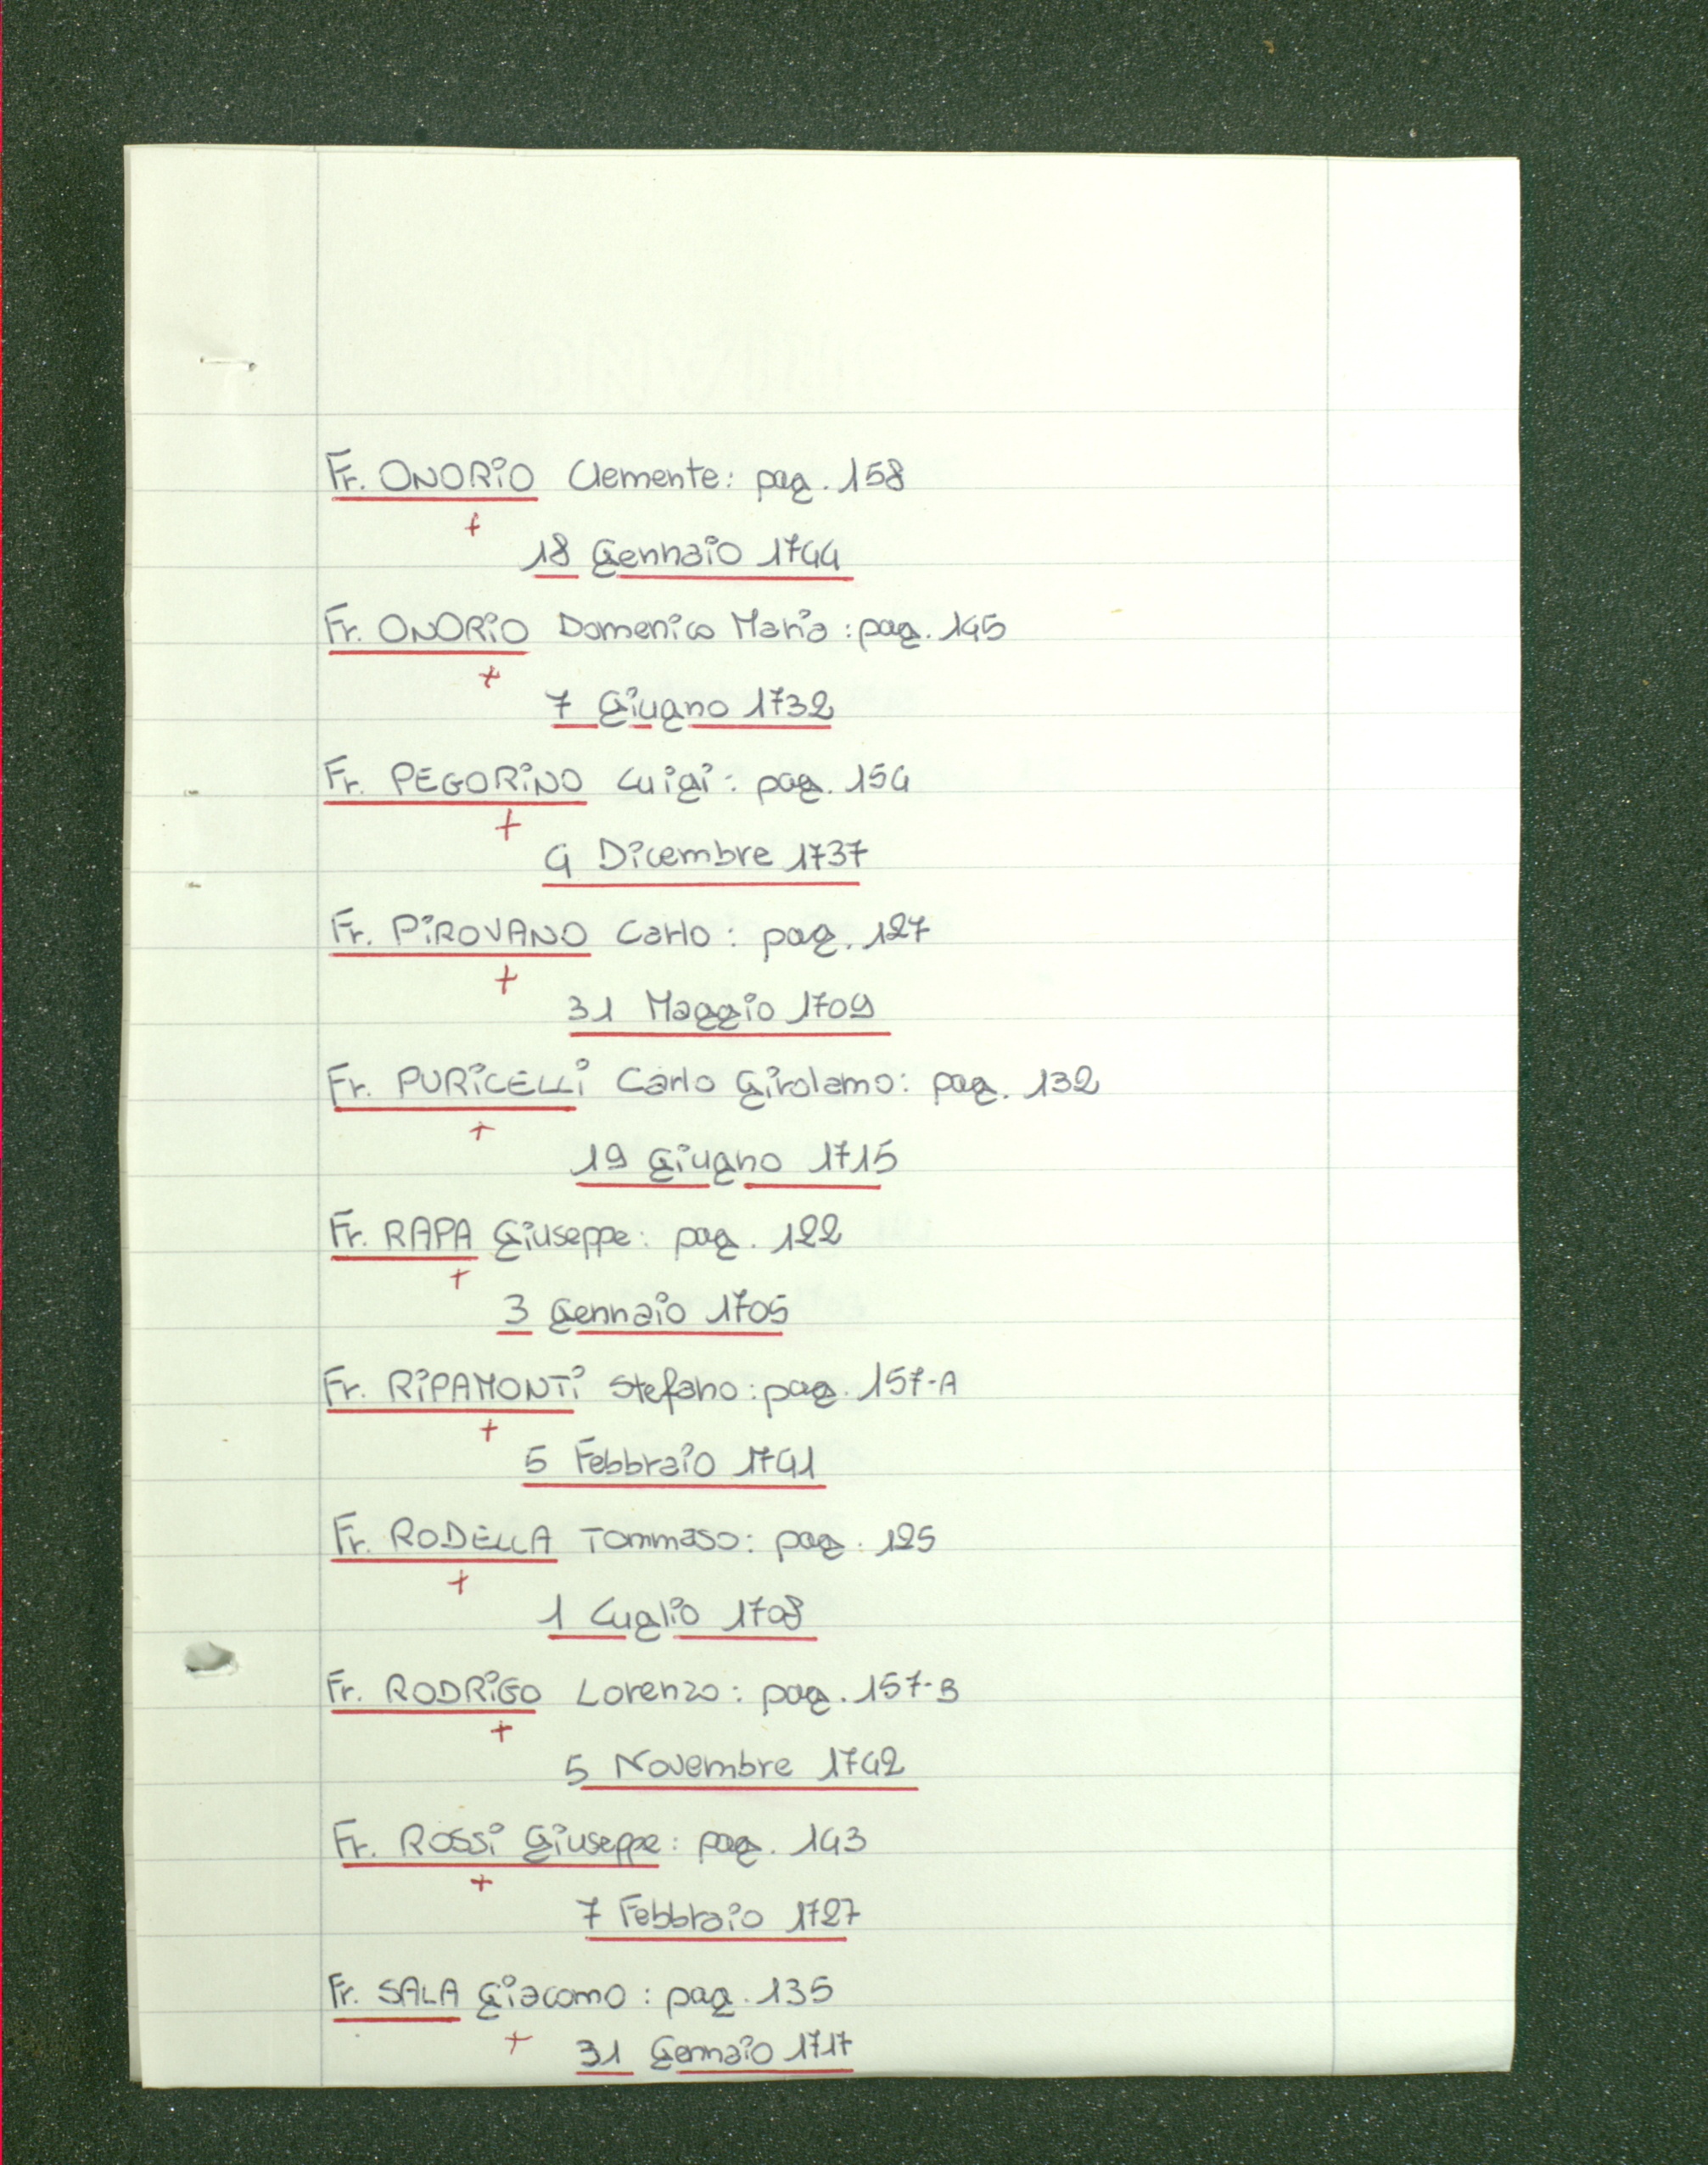 Fr. ONORiO Clemente: pag. 158
+
18 Gennaio 1744
Fr. ONORiO Domenico Maria: pag. 145
+
7 Giugno 1732
Fr. PEGORiNO Luigi: pag. 154
+
4 Dicembre 1737
Fr. PiROVANO Carlo: pag. 127
+
31 Maggio 1709
Fr. PURiCELLi Carlo Girolamo: pag. 132
+
19 Giugno 1715
Fr. RAPA Giuseppe: pag. 122
+
3 Gennaio 1705
Fr. RiPAMONTi Stefano: pag. 157-A
+
5 Febbraio 1741
Fr. RODELLA Tommaso: pag. 125
+
1 Luglio 1708
Fr. RODRiGO Lorenzo: pag. 157-B
+
5 Novembre 1742
Fr. ROSSi Giuseppe: pag. 143
+
7 Febbraio 1727
Fr. SALA Giacomo: pag. 135
+
31 Gennaio 1717